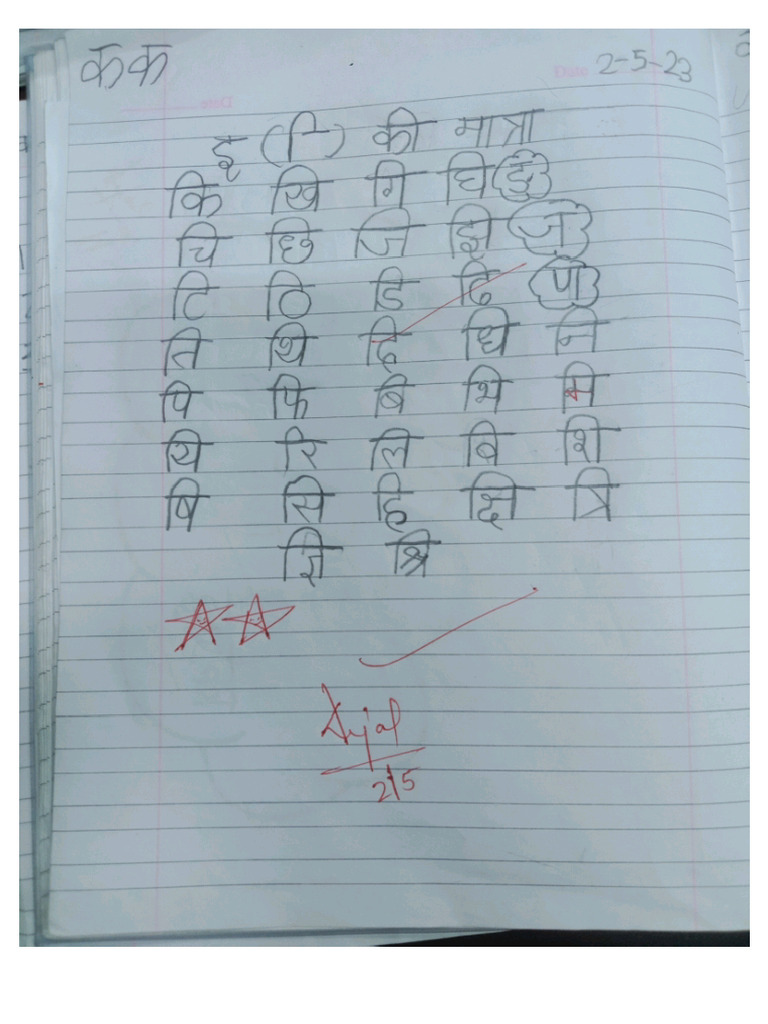 क क 2-5-23
इ ( ि ) की मात्रा
कि खि गि घि ङ
चि छि जि झि ञ
टि ठि डि ढि ण
ति थि दि धि नि
पि फि बि भि मि
यि रि लि वि शि
षि सि हि क्षि त्रि
ज्ञि श्रि
2/5